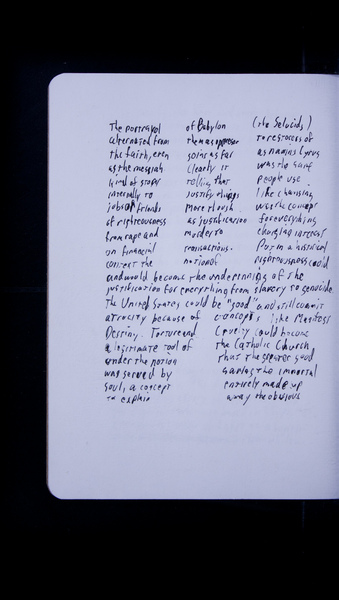 The portrayal of Babylon (the Selucids)
alternated from them as oppressor to restorers of
the faith, even going as far as naming Cyrus
as the messiah Clearly it was the same
kind of story telling that people use
internally to justify things like changing
jobs or friends More though was the concept
of righteousness as justification for everything
from rape and murder to charging interest
on financial transactions. Put in a historical
context the notion of righteousness could
and would become the underpinning of the
justification for everything from slavery to genocide.
The United States could be "good" and still commit
atrocity because of concepts like Manifest
Destiny. Torture and Cruelty could become
a legitimate tool of the Catholic Church,
under the notion that the greater good
was served by saving the immortal
soul, a concept entirely made up
to explain away the obvious